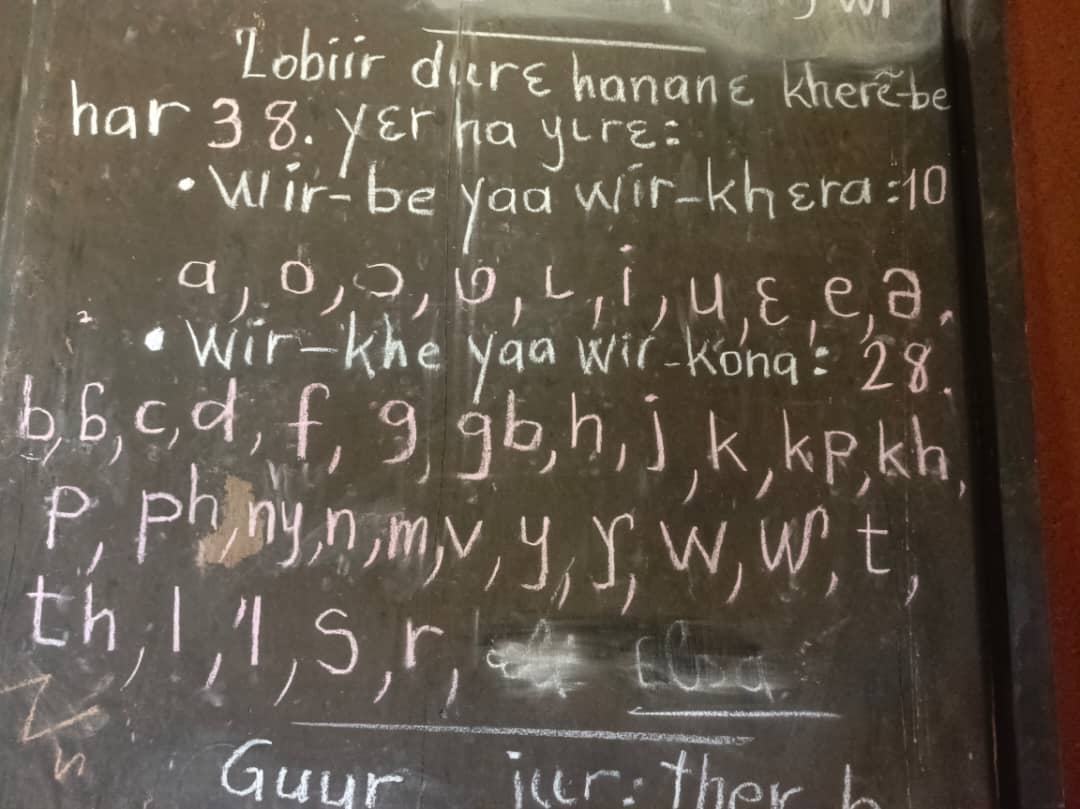 Zobiir dɩɩrɛ hananɛ kherẽ-be
har 38. yɛr ha yɩrɛ:
• Wir-be yaa wir-khɛra: 10
a, o, ɔ, ʋ, ɩ, i, u, ɛ, e, ə.
• Wir-khe yaa wir-kɔna: 28.
b, ɓ, c, d, f, g, gb, h, j, k, kp, kh,
p, ph, ny, n, m, v, y, ƴ, w, wʼ, t,
th, l, ʼl, s, r,
Guur jɩɩr: ther